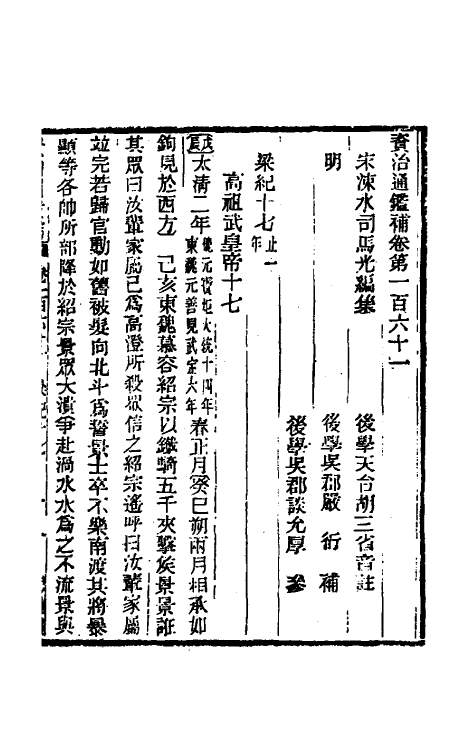 資治通鑑補卷第一百六十一
宋涑水司馬光編集 後學天台胡三省音註
明 後學吳郡嚴 衍 補
後學吳郡談允厚 參
梁紀十七止一年
高祖武皇帝十七
戊辰太清二年魏元寶炬大統十四年東魏元善見武定六年春正月癸巳朔兩月相承如
鉤見於西方 己亥東魏慕容紹宗以鐵騎五千夾擊侯景景誑
其眾曰汝輩家屬已為高澄所殺眾信之紹宗遙呼曰汝輩家屬
並完若歸官勳如舊被髮向北斗為誓景士卒不樂南渡其將暴
顯等各帥所部降於紹宗景眾大潰爭赴渦水水為之不流景與